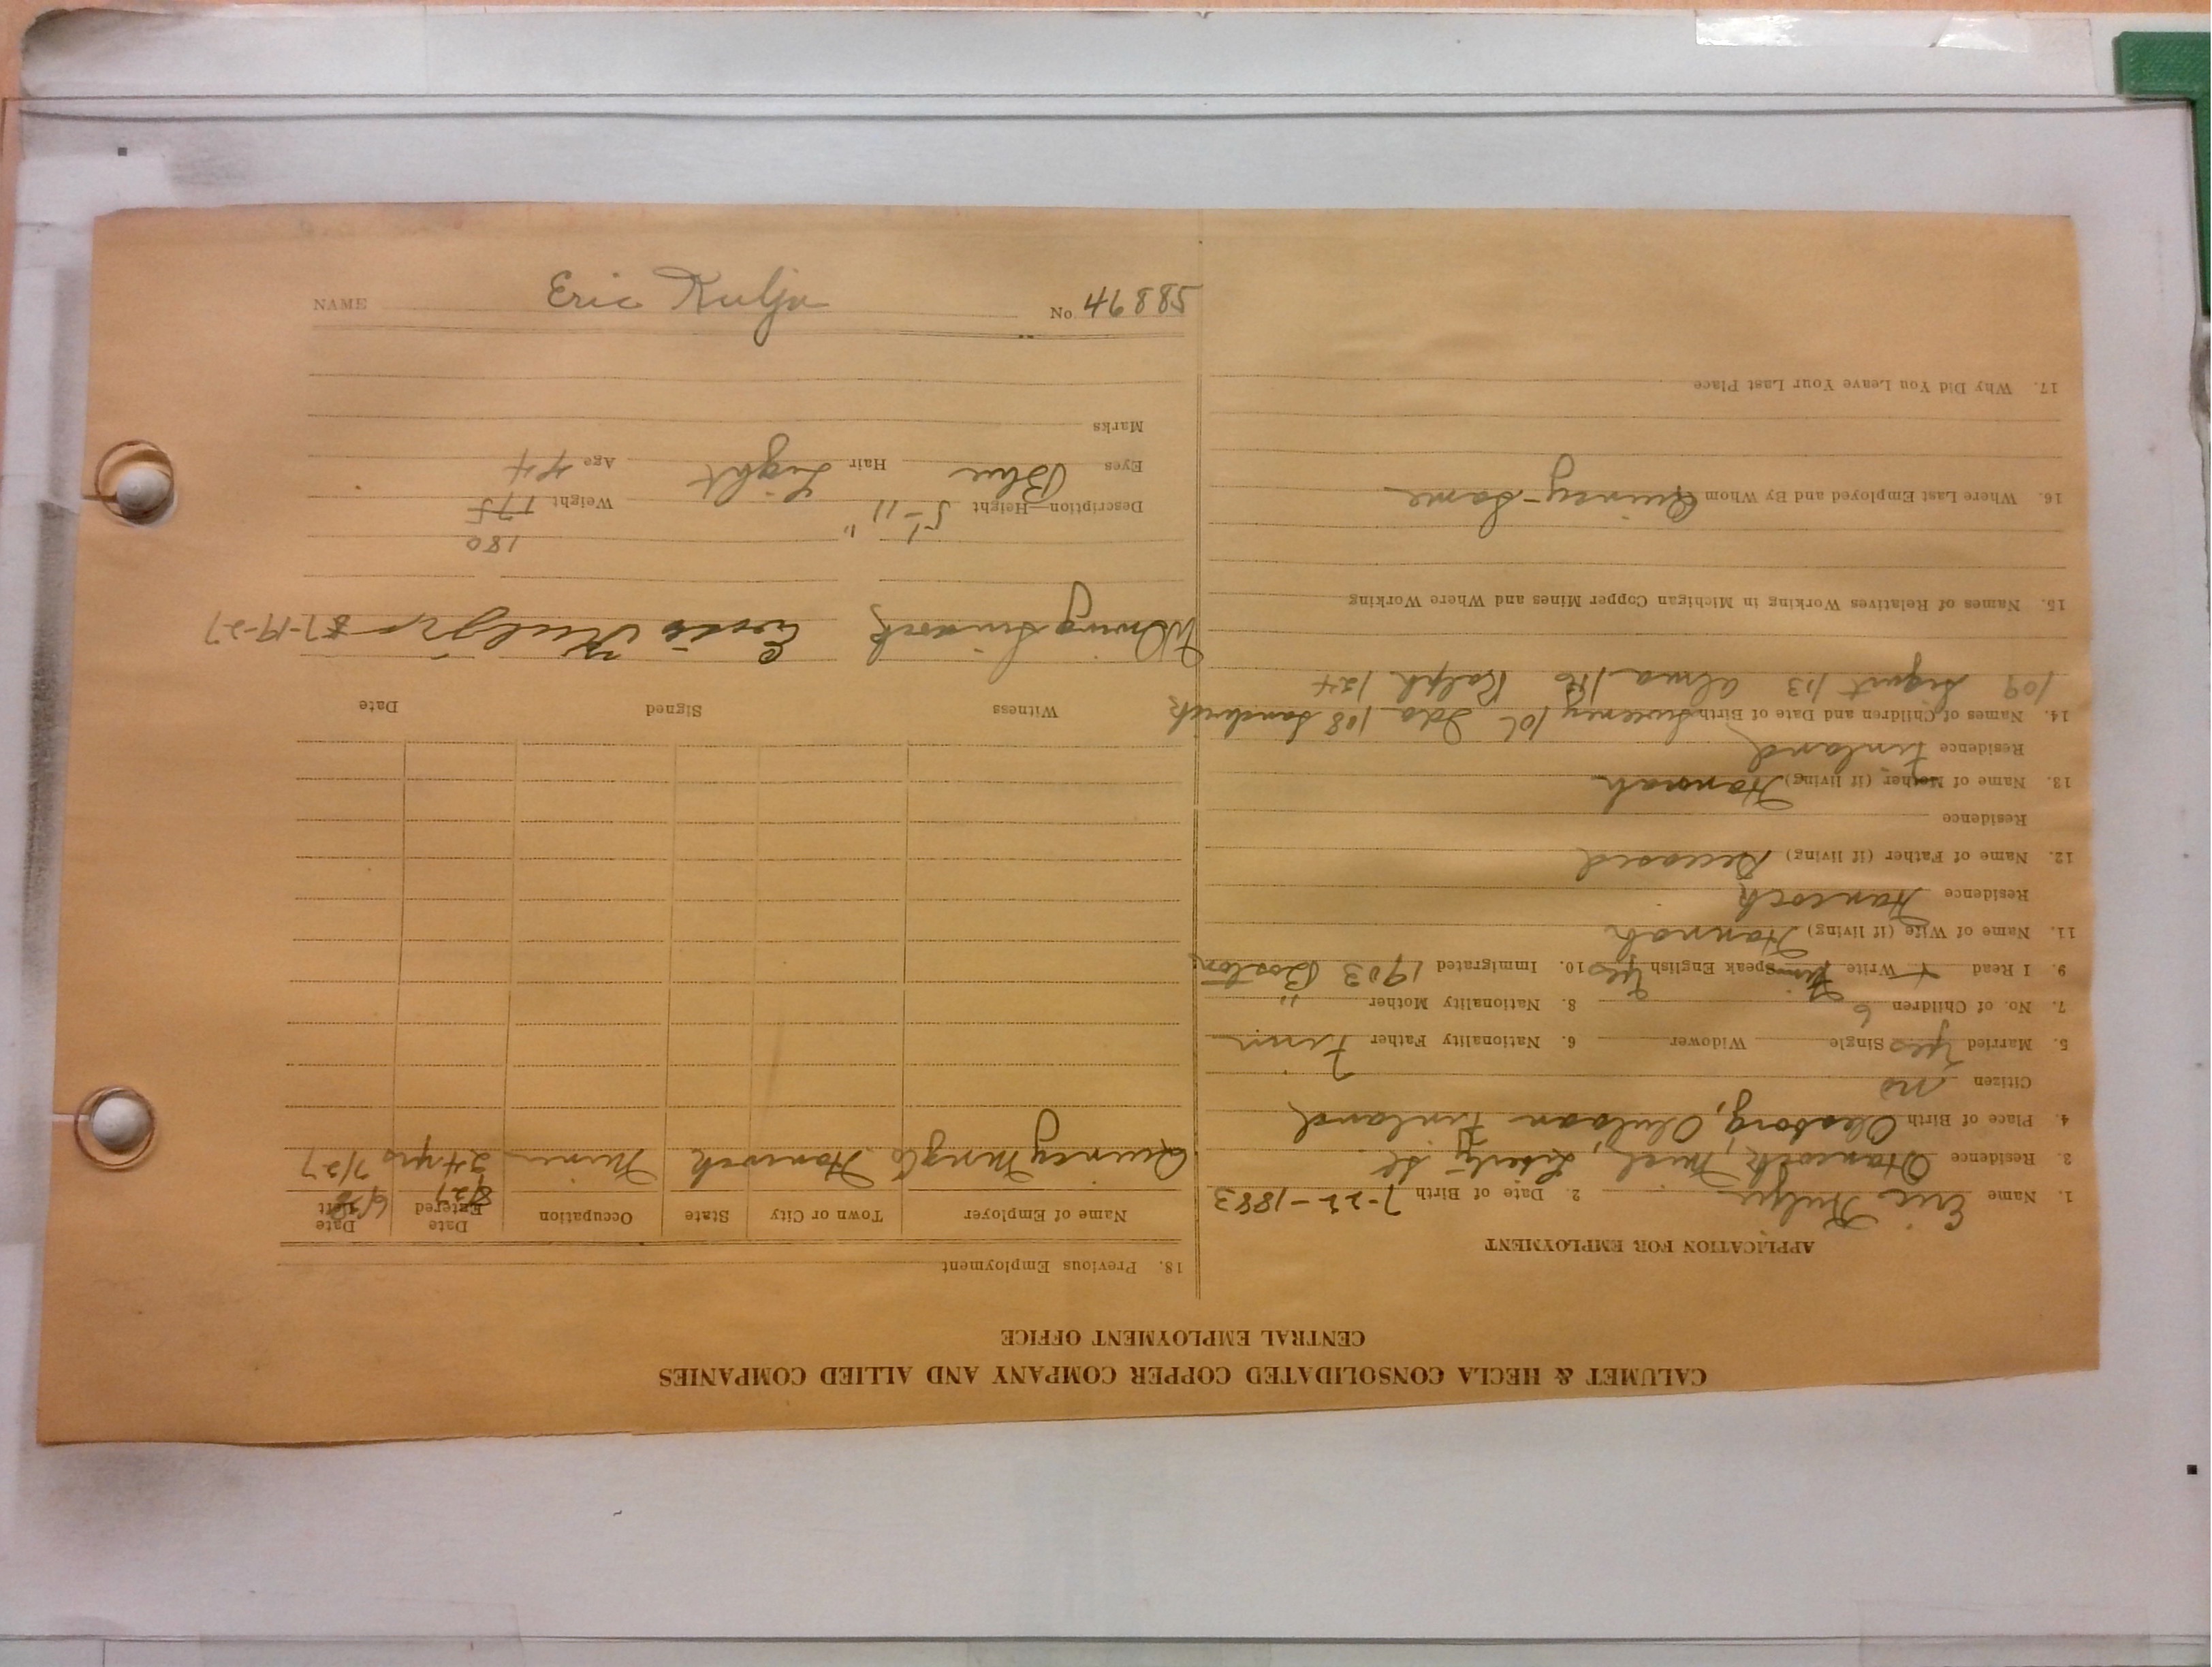 CALUMET & HECLA CONSOLIDATED COPPER COMPANY AND ALLIED COMPANIES
CENTRAL EMPLOYMENT OFFICE
APPLICATION FOR EMPLOYMENT
1. Name Eric Kulja 2. Date of Birth 7-22-1883
3. Residence Hancock, Mich, Liberty St
4. Place of Birth Oleaborg, Finland
Citizen no
5. Married Yes Single Widower 6. Nationality Father Finn
7. No. of Children 6 8. Nationality Mother "
9. I Read Write Finn Speak English Yes 10. Immigrated 1903 Boston
11. Name of Wife (if living) Hannah
Residence Hancock
12. Name of Father (if living) Deceased
Residence
13. Name of Mother (if living) Hannah
Residence Finland
14. Names of Children and Date of Birth 106 Ida 108
109 113 Alma 116 Ralph 124
15. Names of Relatives Working in Michigan Copper Mines and Where Working
16. Where Last Employed and By Whom Quincy - Same
17. Why Did You Leave Your Last Place
18. Previous Employment
Name of Employer Town or City State Occupation Date Entered Date Left
8/27 6/28
Quincy Mng Co Hancock Miner 24 yrs 7/27
Witness Signed Date
7-19-27
180
Description—Height 5'-11" Weight 175
Eyes Blue Hair Light Age 44
Marks
NAME Eric Kulja No. 46885